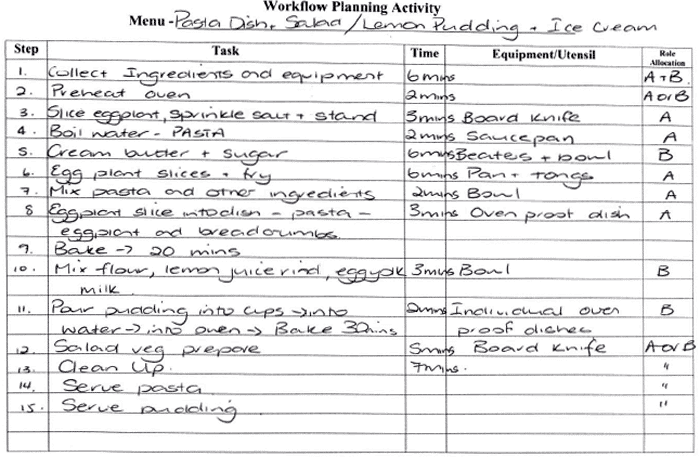 Workflow Planning Activity
Menu - Pasta Dish, Salad / Lemon Pudding + Ice Cream
Step Task Time Equipment/Utensil Role Allocation
1. Collect Ingredients and equipment 6 mins A+B.
2. Preheat oven 2mins A or B
3. Slice eggplant, sprinkle salt + stand 3mins Board Knife A
4. Boil water - PASTA 2mins Saucepan A
5. Cream butter + sugar 6mins Beaters + bowl B
6. Egg plant slices + fry 6mins Pan + tongs A
7. Mix pasta and other ingredients 2mins Bowl A
8 Eggplant slice into dish - pasta - 3mins Oven proof dish A
eggplant and breadcrumbs.
9. Bake → 20 mins
10. Mix flour, lemon juice rind, eggyolk 3mins Bowl B
milk.
11. Pour pudding into cups → into 2mins Individual oven B
water → into oven → Bake 30mins proof dishes
12. Salad veg prepare 5mins Board Knife A or B
13. Clean Up. 7mins. "
14. Serve pasta "
15. Serve pudding "